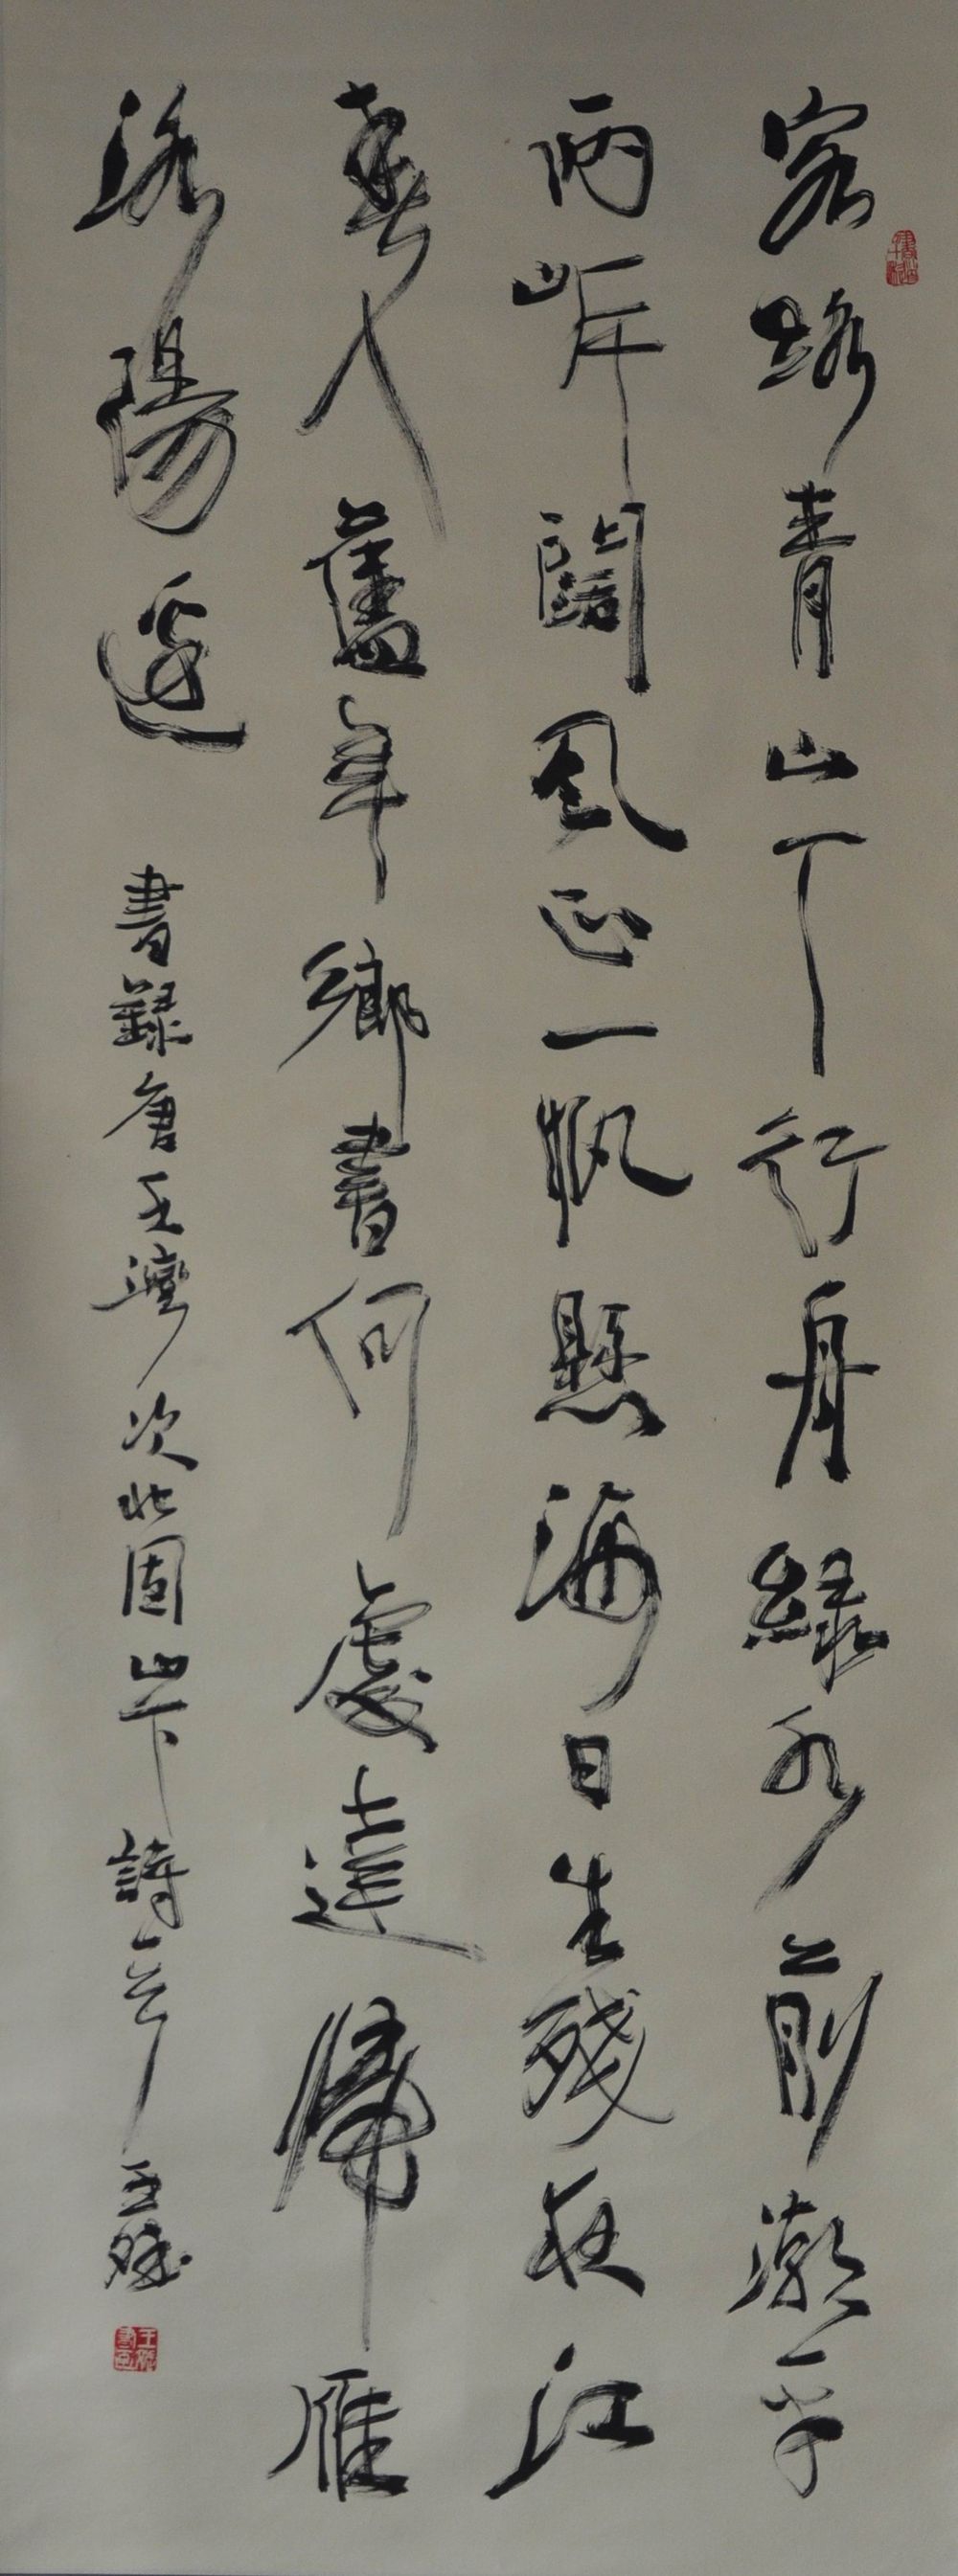 客路青山下行舟綠水前潮平
兩岸闊風正一帆懸海日生殘夜江
春入舊年鄉書何處達歸雁
洛陽邊
書錄唐王灣次北固山下詩
王